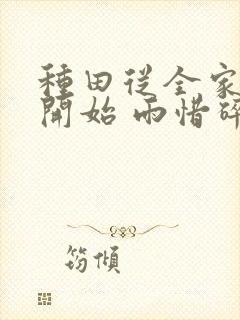 種田從全家
開始 雨惜碎
筠傾